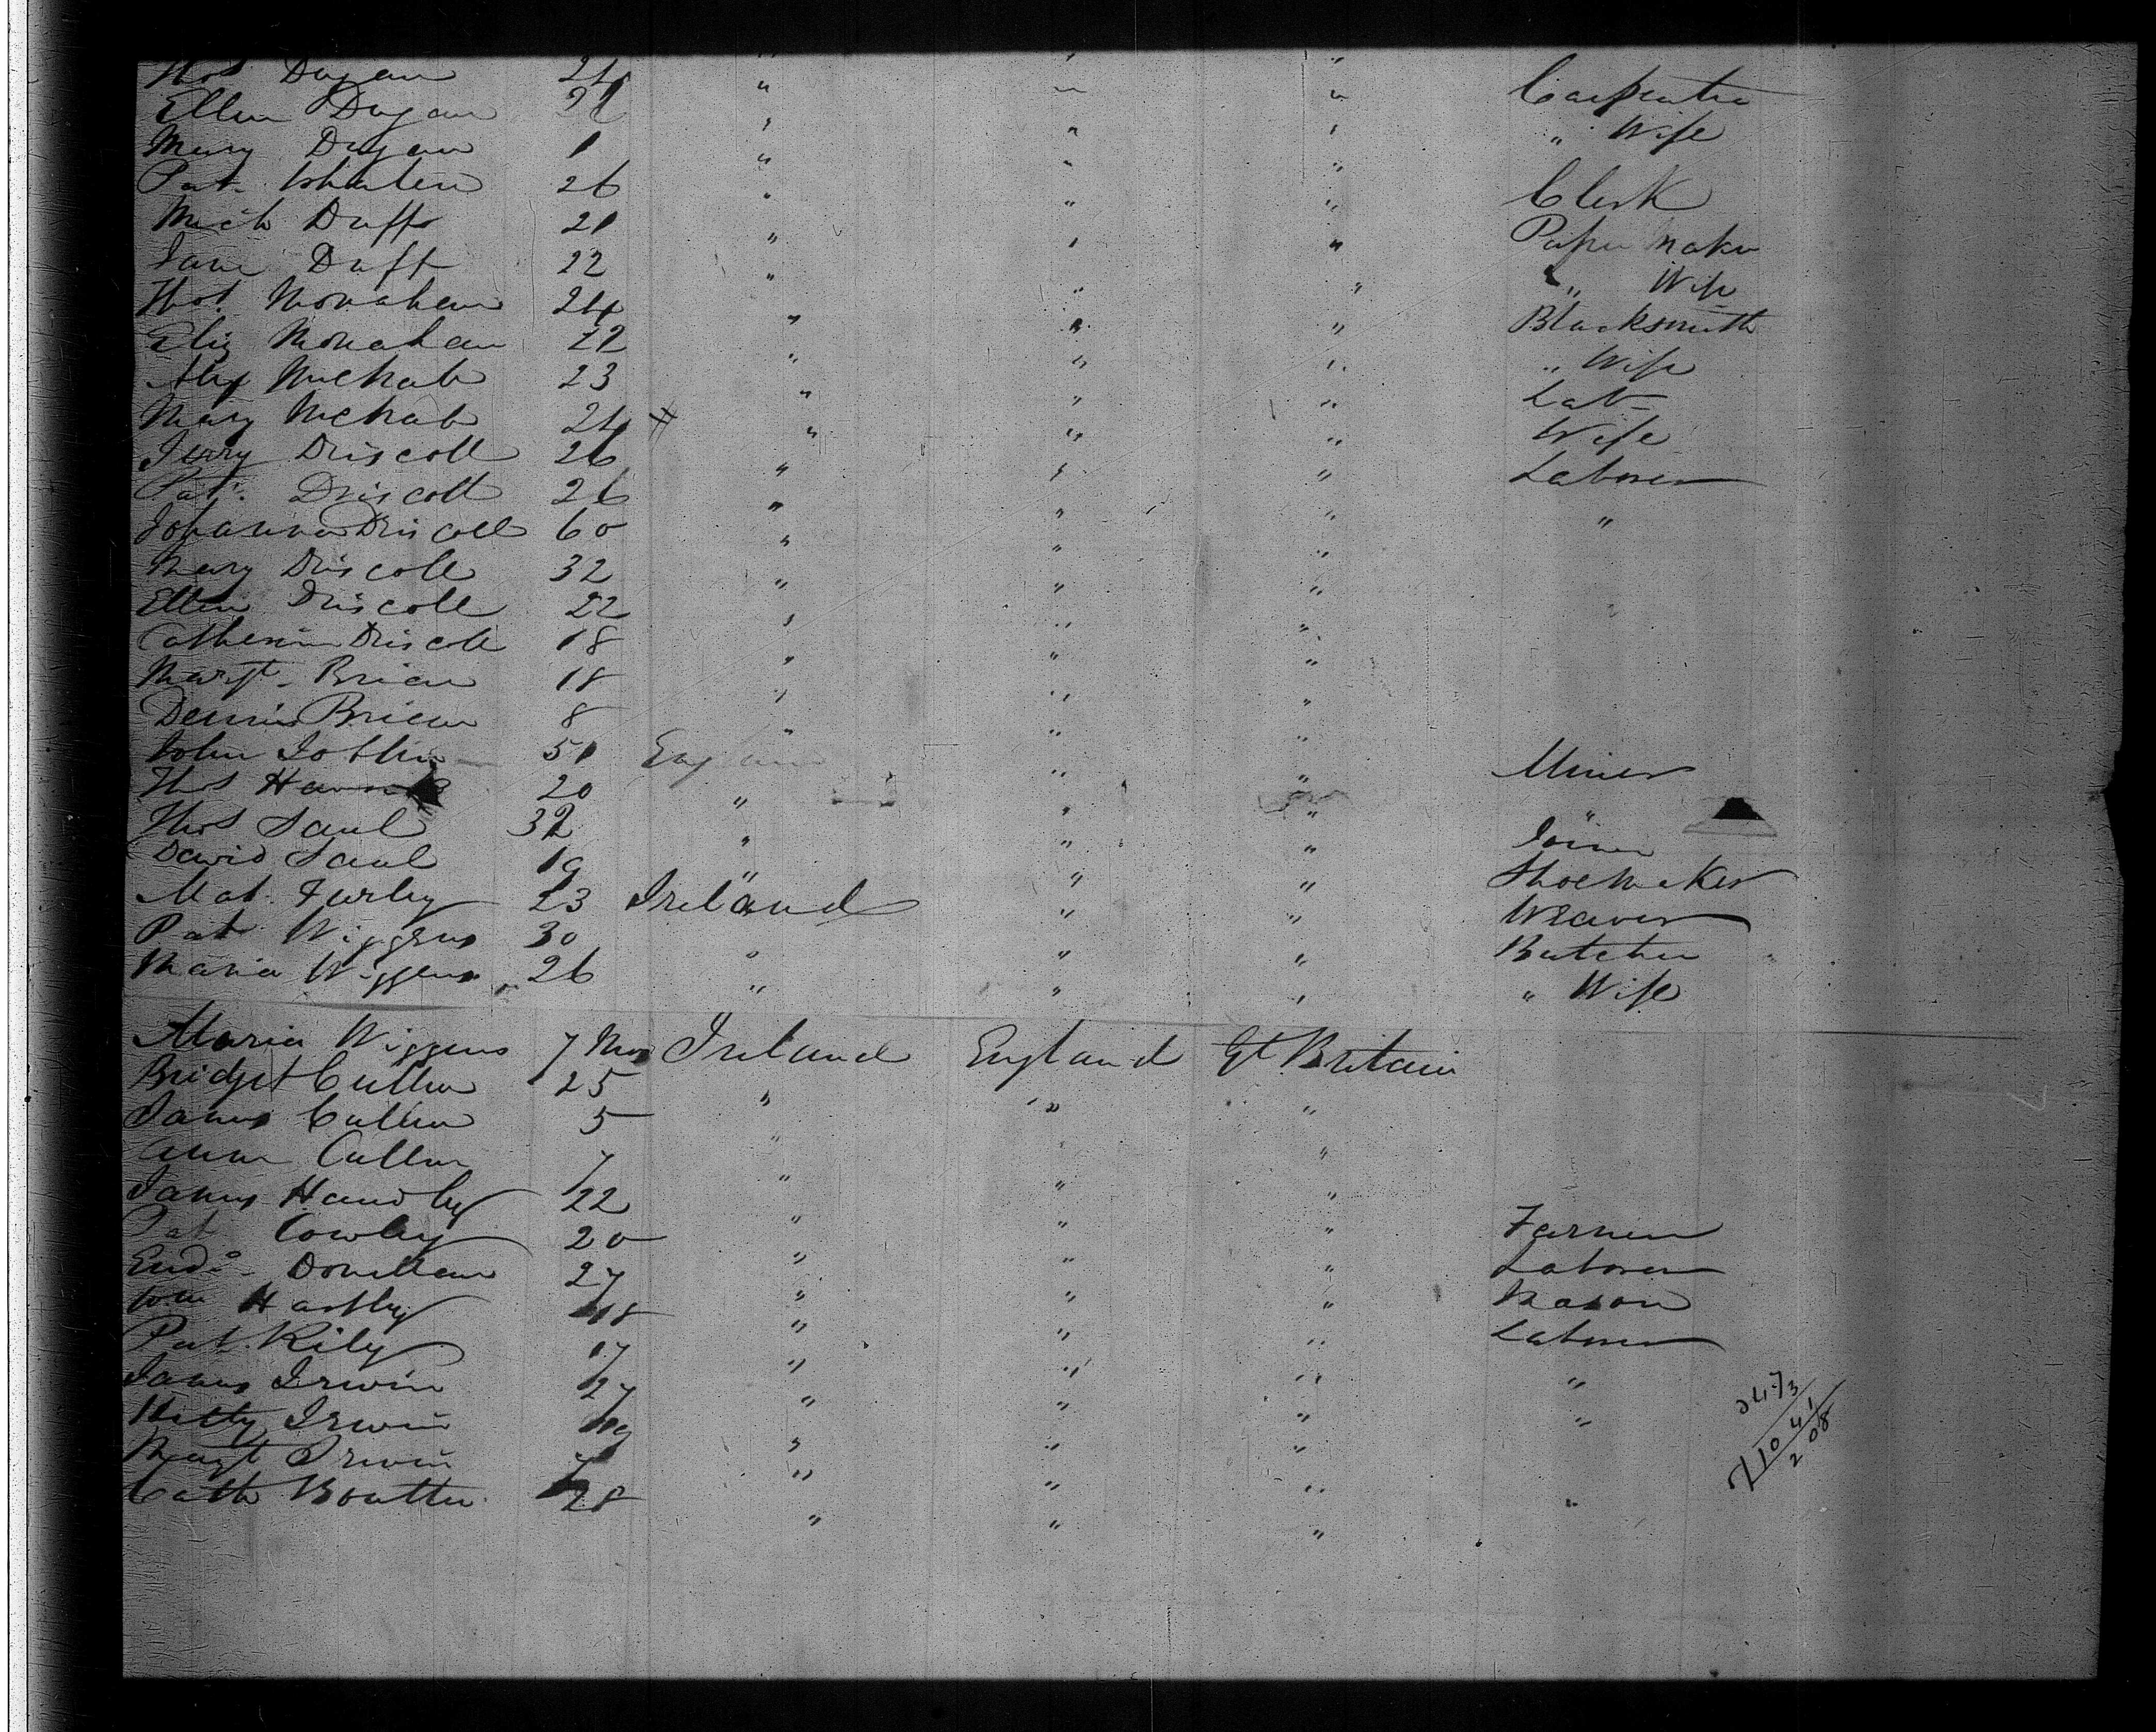 Thos Dugan 24 " " " Carpenter
Ellen Dugan 22 " " " " Wife
Mary Dugan 1 " " "
Pat. Whalen 26 " " " Clerk
Mich Duff 21 " " " Paper Maker
Jane Duff 22 " " " " Wife
Thos. Monahan 24 " " " Blacksmith
Eliz Monahan 22 " " " " Wife
Alex McNab 23 " " " Lab
Mary McNab 24 " " " Wife
Jerry Driscoll 26 " " " Laborer
Pat. Driscoll 26 " " " "
Johanna Driscoll 60 " " "
Mary Driscoll 32 " " "
Ellen Driscoll 22 " " "
Catherine Driscoll 18 " " "
Margt. Brien 18 " " "
Dennis Brien 8 " " "
John 51 England " " Miner
Thos 20 " " " "
Thos Saul 32 " " " Joiner
David Saul 19 " " " Shoemaker
Mat. Furley 23 Ireland " " Weaver
Pat Wiggens 30 " " " Butcher
Maria Wiggens 26 " " " " Wife
Maria Wiggens 7 Mos Ireland England Gt Britain
Bridget Cullen 25 " " "
James Cullen 5 " " "
Anne Cullen 7 " " "
James Handley 22 " " " Farmer
Pat Cowley 20 " " " Laborer
Edwd. Donellan 27 " " " Mason
Wm Hartley 18 " " " Laborer
Pat. Rily 17 " " " "
James Irwin 27 " " " "
Kitty Irwin 19 " " "
Margt Irwin 7 " " " "
Cath 28 " " "
2473
41
208